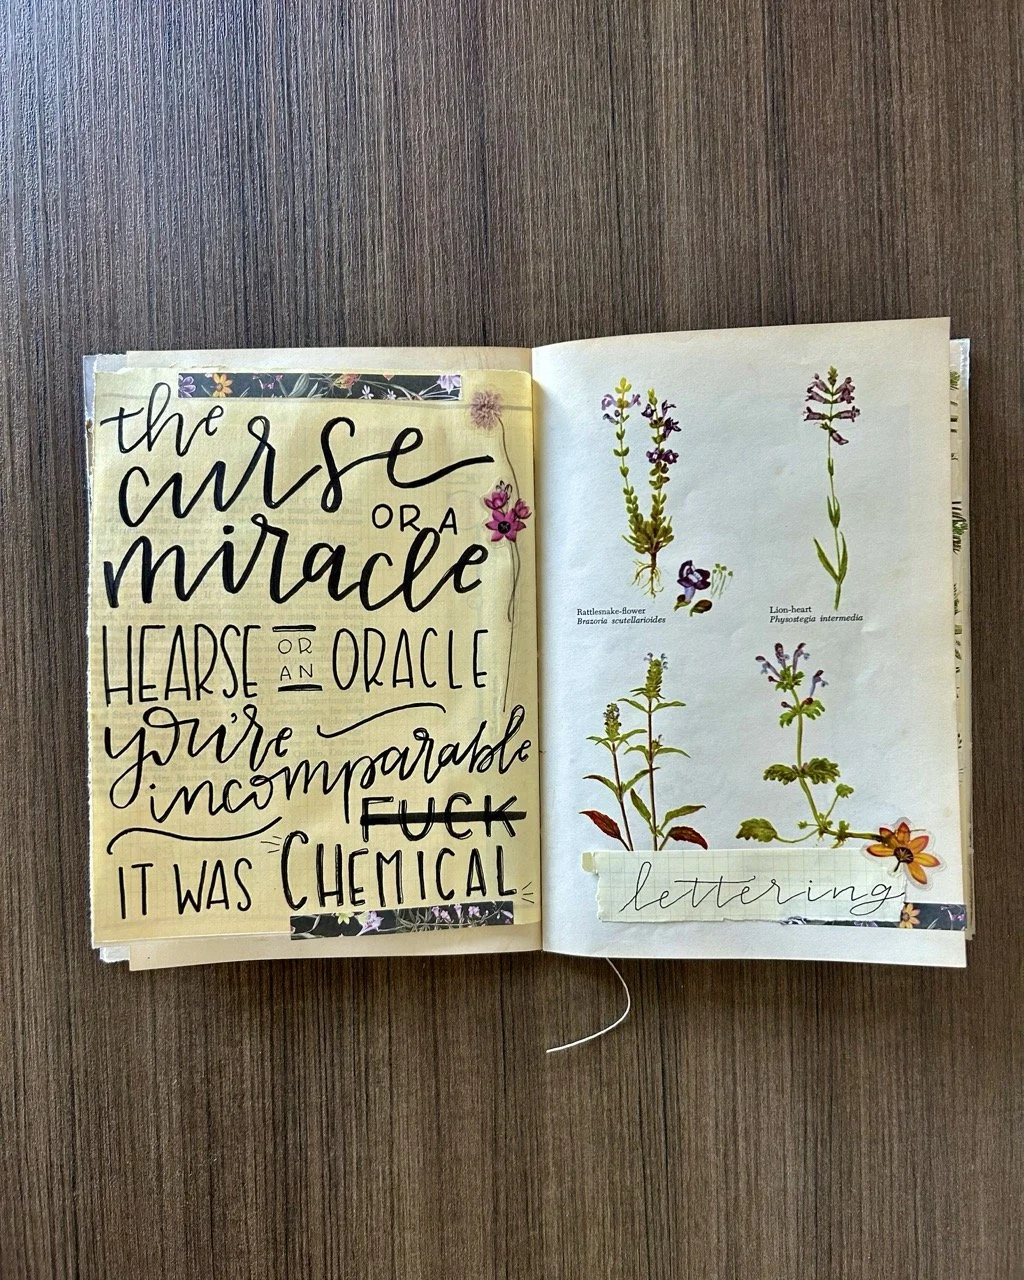 the
curse
OR A
miracle
HEARSE OR AN ORACLE
you're
incomparable
FUCK
IT WAS CHEMICAL
Rattlesnake-flower
Brazoria scutellarioides
Lion-heart
Physostegia intermedia
lettering